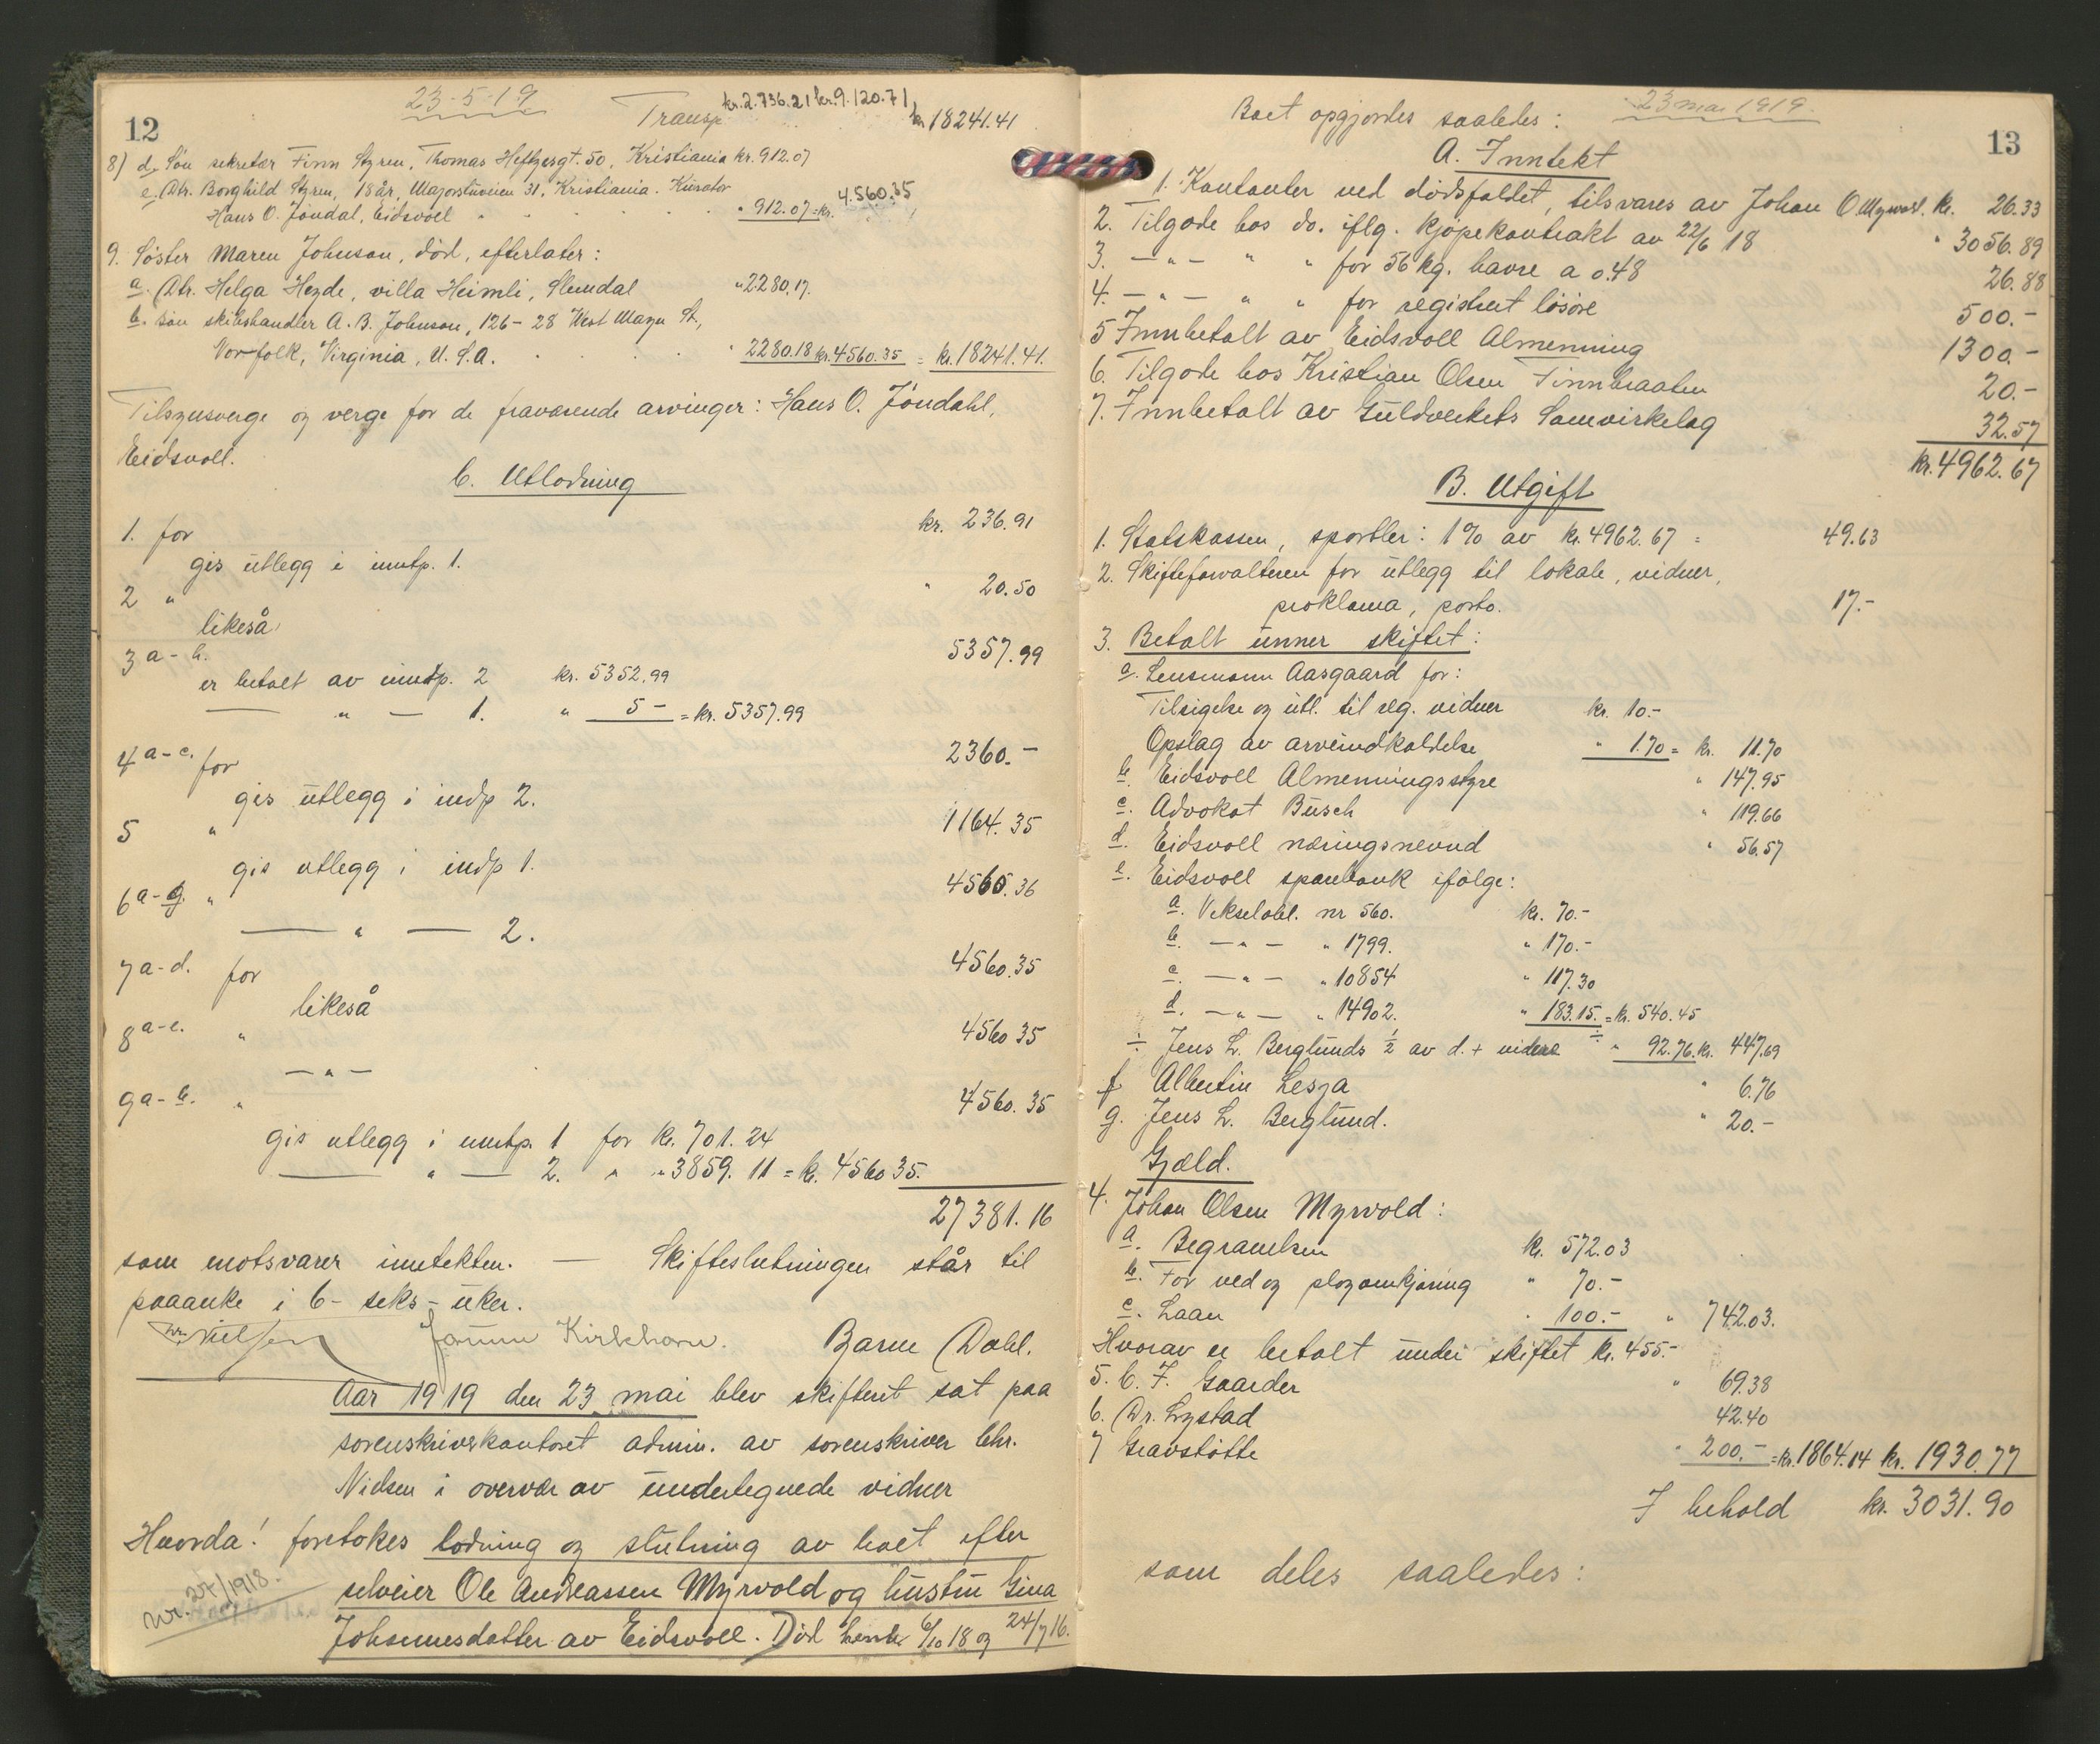 12
23-5-19
Transp. kr. 2.736.21 kr. 9.120.71 kr 18241.41
8) d. Søn sekretær Finn Styren, Thomas Heftyesgt. 50, Kristiania kr. 912.07
e. Dtr. Borghild Styren, 18 år, Majorstuveien 31, Kristiania. Kurator
Hans O. Jöndal, Eidsvoll " 912.07 = kr. 4.560.35
9. Søster Maren Johnson, död, efterlater:
a. Dtr. Helga Heyde, villa Heimli, Slemdal " 2280.17.
b. sön skibshandler A. B. Johnson, 126-28 West Mayn St.,
Norfolk, Virginia, U.S.A. " 2280.18 kr. 4560.35 = kr. 18241.41.
Tilsynsverge og verge for de fraværende arvinger: Hans O. Jöndahl,
Eidsvoll.
C. Utlodning
1. for kr. 236.91
gis utlegg i inntp. 1.
2 " " 20.50
likeså
3 a-b. 5357.99
er betalt av inntp. 2 kr. 5352.99
— " — 1. " 5- = kr. 5357.99
4 a-c. for 2360.-
gis utlegg i indp 2.
5 " 1164.35
gis utlegg i indp 1.
6 a-g. " 4560.36
— " — 2.
7 a-d. for 4560.35
likeså
8 a-e. " 4560 35
— " —
9 a-b. " 4560.35
gis utlegg i inntp. 1 for kr. 701.24
— " — 2. " " 3859.11 = k. 4560 35.
27381.16
som motsvarer inntekten. — Skifteslutningen står til
paaanke i 6- seks - uker.
Chr. Nielsen Bjarne Dahl.
Aar 1919 den 23 mai blev skifteret sat paa
sorenskriverkontoret admin. av sorenskriver Chr.
Nielsen i overvær av undertegnede vidner
Hvorda! foretokes lodning og slutning av boet efter
selveier Ole Andreassen Myrvold og hustru Gina
Johannesdatter av Eidsvoll. Död henh. 6/10 18 og 24/7 16.
Nr. 27/1918.
13
23 mai 1919.
Boet opgjordes saaledes:
A. Inntekt
1. Kontanter ved dödsfaldet, tilsvares av Johan O. Myrvold. kr. 26.33
2. Tilgode hos do. iflg. kjöpekontrakt av 22/6 18 " 3056.89
3. — " — " " for 56 kg. havre a 0.48 26.88
4. — " — " " for registrert lösöre 500.-
5 Innbetalt av Eidsvoll Almenning 1300.-
6. Tilgode hos Kristian Olsen Finnbraaten 20.-
7. Innbetalt av Guldverkets Samvirkelag 32.57
kr. 4962.67
B. Utgift
1. Statskassen, sportler: 1% av kr. 4962.67 = 49.63
2. Skifteforvalteren for utlegg til lokale, vidner,
proklama, porto. 17.-
3. Betalt unner skiftet:
a. Lensmann Aasgaard for:
Tilsigelse og utl. til reg. vidner kr. 10.-
Opslag av arveindkaldelse " 1.70 = kr. 11.70
b. Eidsvoll Almenningsstyre " 147.95
c. Advokat Busch " 119.66
d. Eidsvoll næringsnevnd " 56.57
e. Eidsvoll sparebank ifölge:
a. Vekselobl. nr 560. kr. 70.-
b. — " — " 1799. " 170.-
c. — " — " 10854 " 117.30
d. — " — " 14902. " 183.15. = kr. 540.45
÷ Jens L. Berglunds 1/2 av d. + videre ÷ " 92.76. kr. 447.69
f Albertin Lesja " 6.76
g. Jens L. Berglund. " 20.-
Gjæld.
4. Johan Olsen Myrvold:
a. Begravelsen kr. 572.03
b. For ved og plogomkjöring " 70.-
c. Laan " 100.- " 742.03.
Hvorav er betalt under skiftet kr. 455.-
5. C. F. Gaarder " 69.38
6. Dr. Lystad 42.40
7 Gravstötte " 200.- = kr. 1864.14 kr. 1930.77
I behold kr. 3031.90
som deles saaledes: